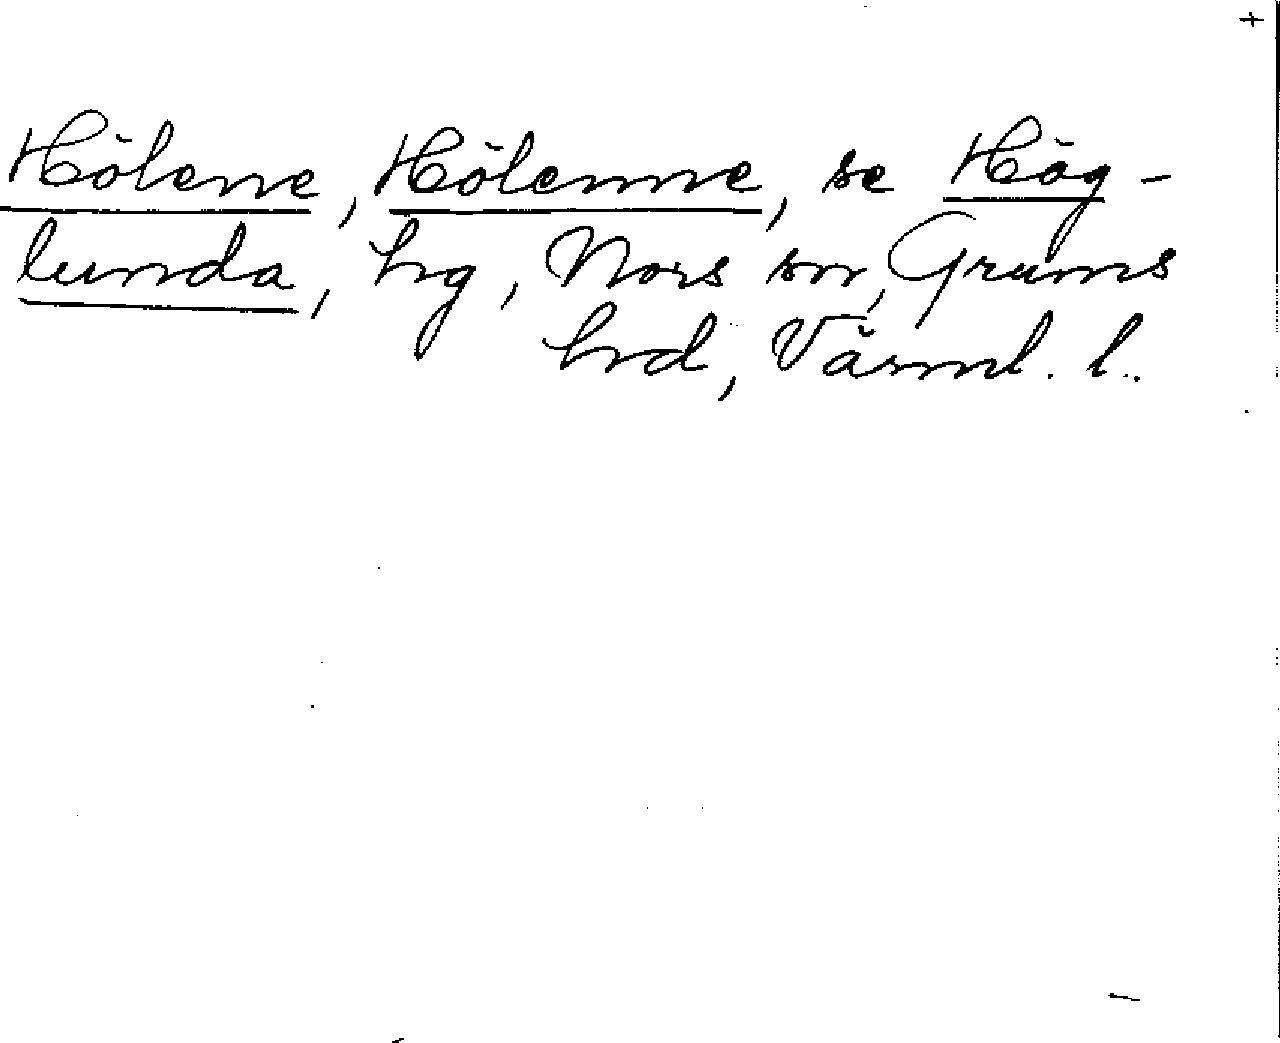 Hölene, Hölenne, se Hög-
lunda, hg, Nors sn, Grums
hrd, Värml. l.